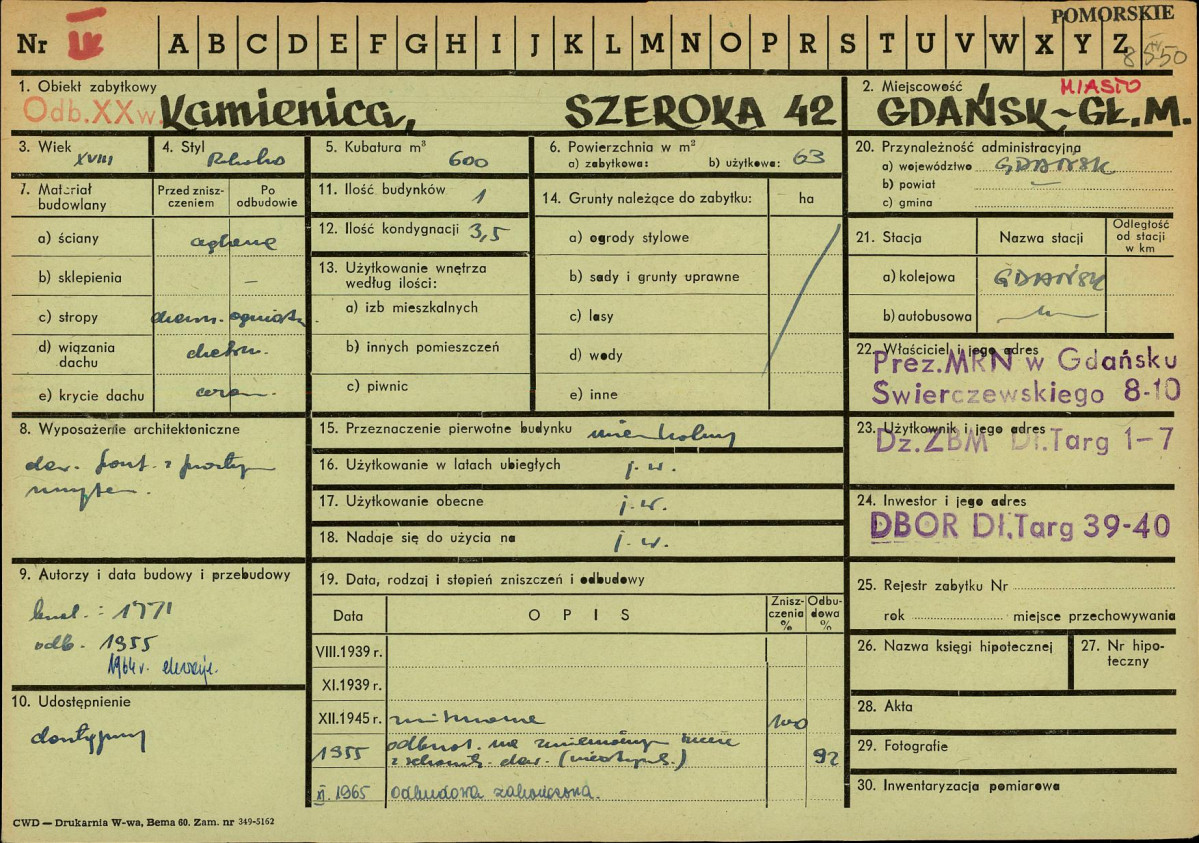 POMORSKIE
Nr IX A B C D E F G H I J K L M N O P R S T U V W X Y Z
8550
1. Obiekt zabytkowy
Odb. XX w. Kamienica, SZEROKA 42
2. Miejscowość MIASTO
GDAŃSK-GŁ.M.
3. Wiek XVIII
4. Styl Rokoko
5. Kubatura m³ 600
6. Powierzchnia w m²
a) zabytkowa: b) użytkowa: 63
7. Materiał budowlany
Przed zniszczeniem
Po odbudowie
a) ściany ceglane
b) sklepienia —
c) stropy drewn. ogniotr.
d) wiązania dachu drewn.
e) krycie dachu ceram.
8. Wyposażenie architektoniczne
9. Autorzy i data budowy i przebudowy
bud.: 1771
odb. 1955
1964 r. elewacje.
10. Udostępnienie
dostępny
11. Ilość budynków 1
12. Ilość kondygnacji 3,5
13. Użytkowanie wnętrza
według ilości:
a) izb mieszkalnych
b) innych pomieszczeń
c) piwnic
14. Grunty należące do zabytku: ha
a) ogrody stylowe
b) sady i grunty uprawne
c) lasy
d) wody
e) inne
15. Przeznaczenie pierwotne budynku mieszkalny
16. Użytkowanie w latach ubiegłych j. w.
17. Użytkowanie obecne j. w.
18. Nadaje się do użycia na j. w.
19. Data, rodzaj i stopień zniszczeń i odbudowy
Data OPIS Zniszczenia % Odbudowa %
VIII.1939 r.
XI.1939 r.
XII.1945 r. zniszczone 100
1955 92
XI.1965 odbudowa zakończona.
20. Przynależność administracyjna
a) województwo GDAŃSK
b) powiat —
c) gmina
21. Stacja Nazwa stacji Odległość od stacji w km
a) kolejowa GDAŃSK
b) autobusowa
22. Właściciel i jego adres
Prez.MRN w Gdańsku
Świerczewskiego 8-10
23. Użytkownik i jego adres
Dz.ZBM Dł.Targ 1-7
24. Inwestor i jego adres
DBOR Dł.Targ 39-40
25. Rejestr zabytku Nr
rok miejsce przechowywania
26. Nazwa księgi hipotecznej
27. Nr hipoteczny
28. Akta
29. Fotografie
30. Inwentaryzacja pomiarowa
CWD — Drukarnia W-wa, Bema 60. Zam. nr 349-5162